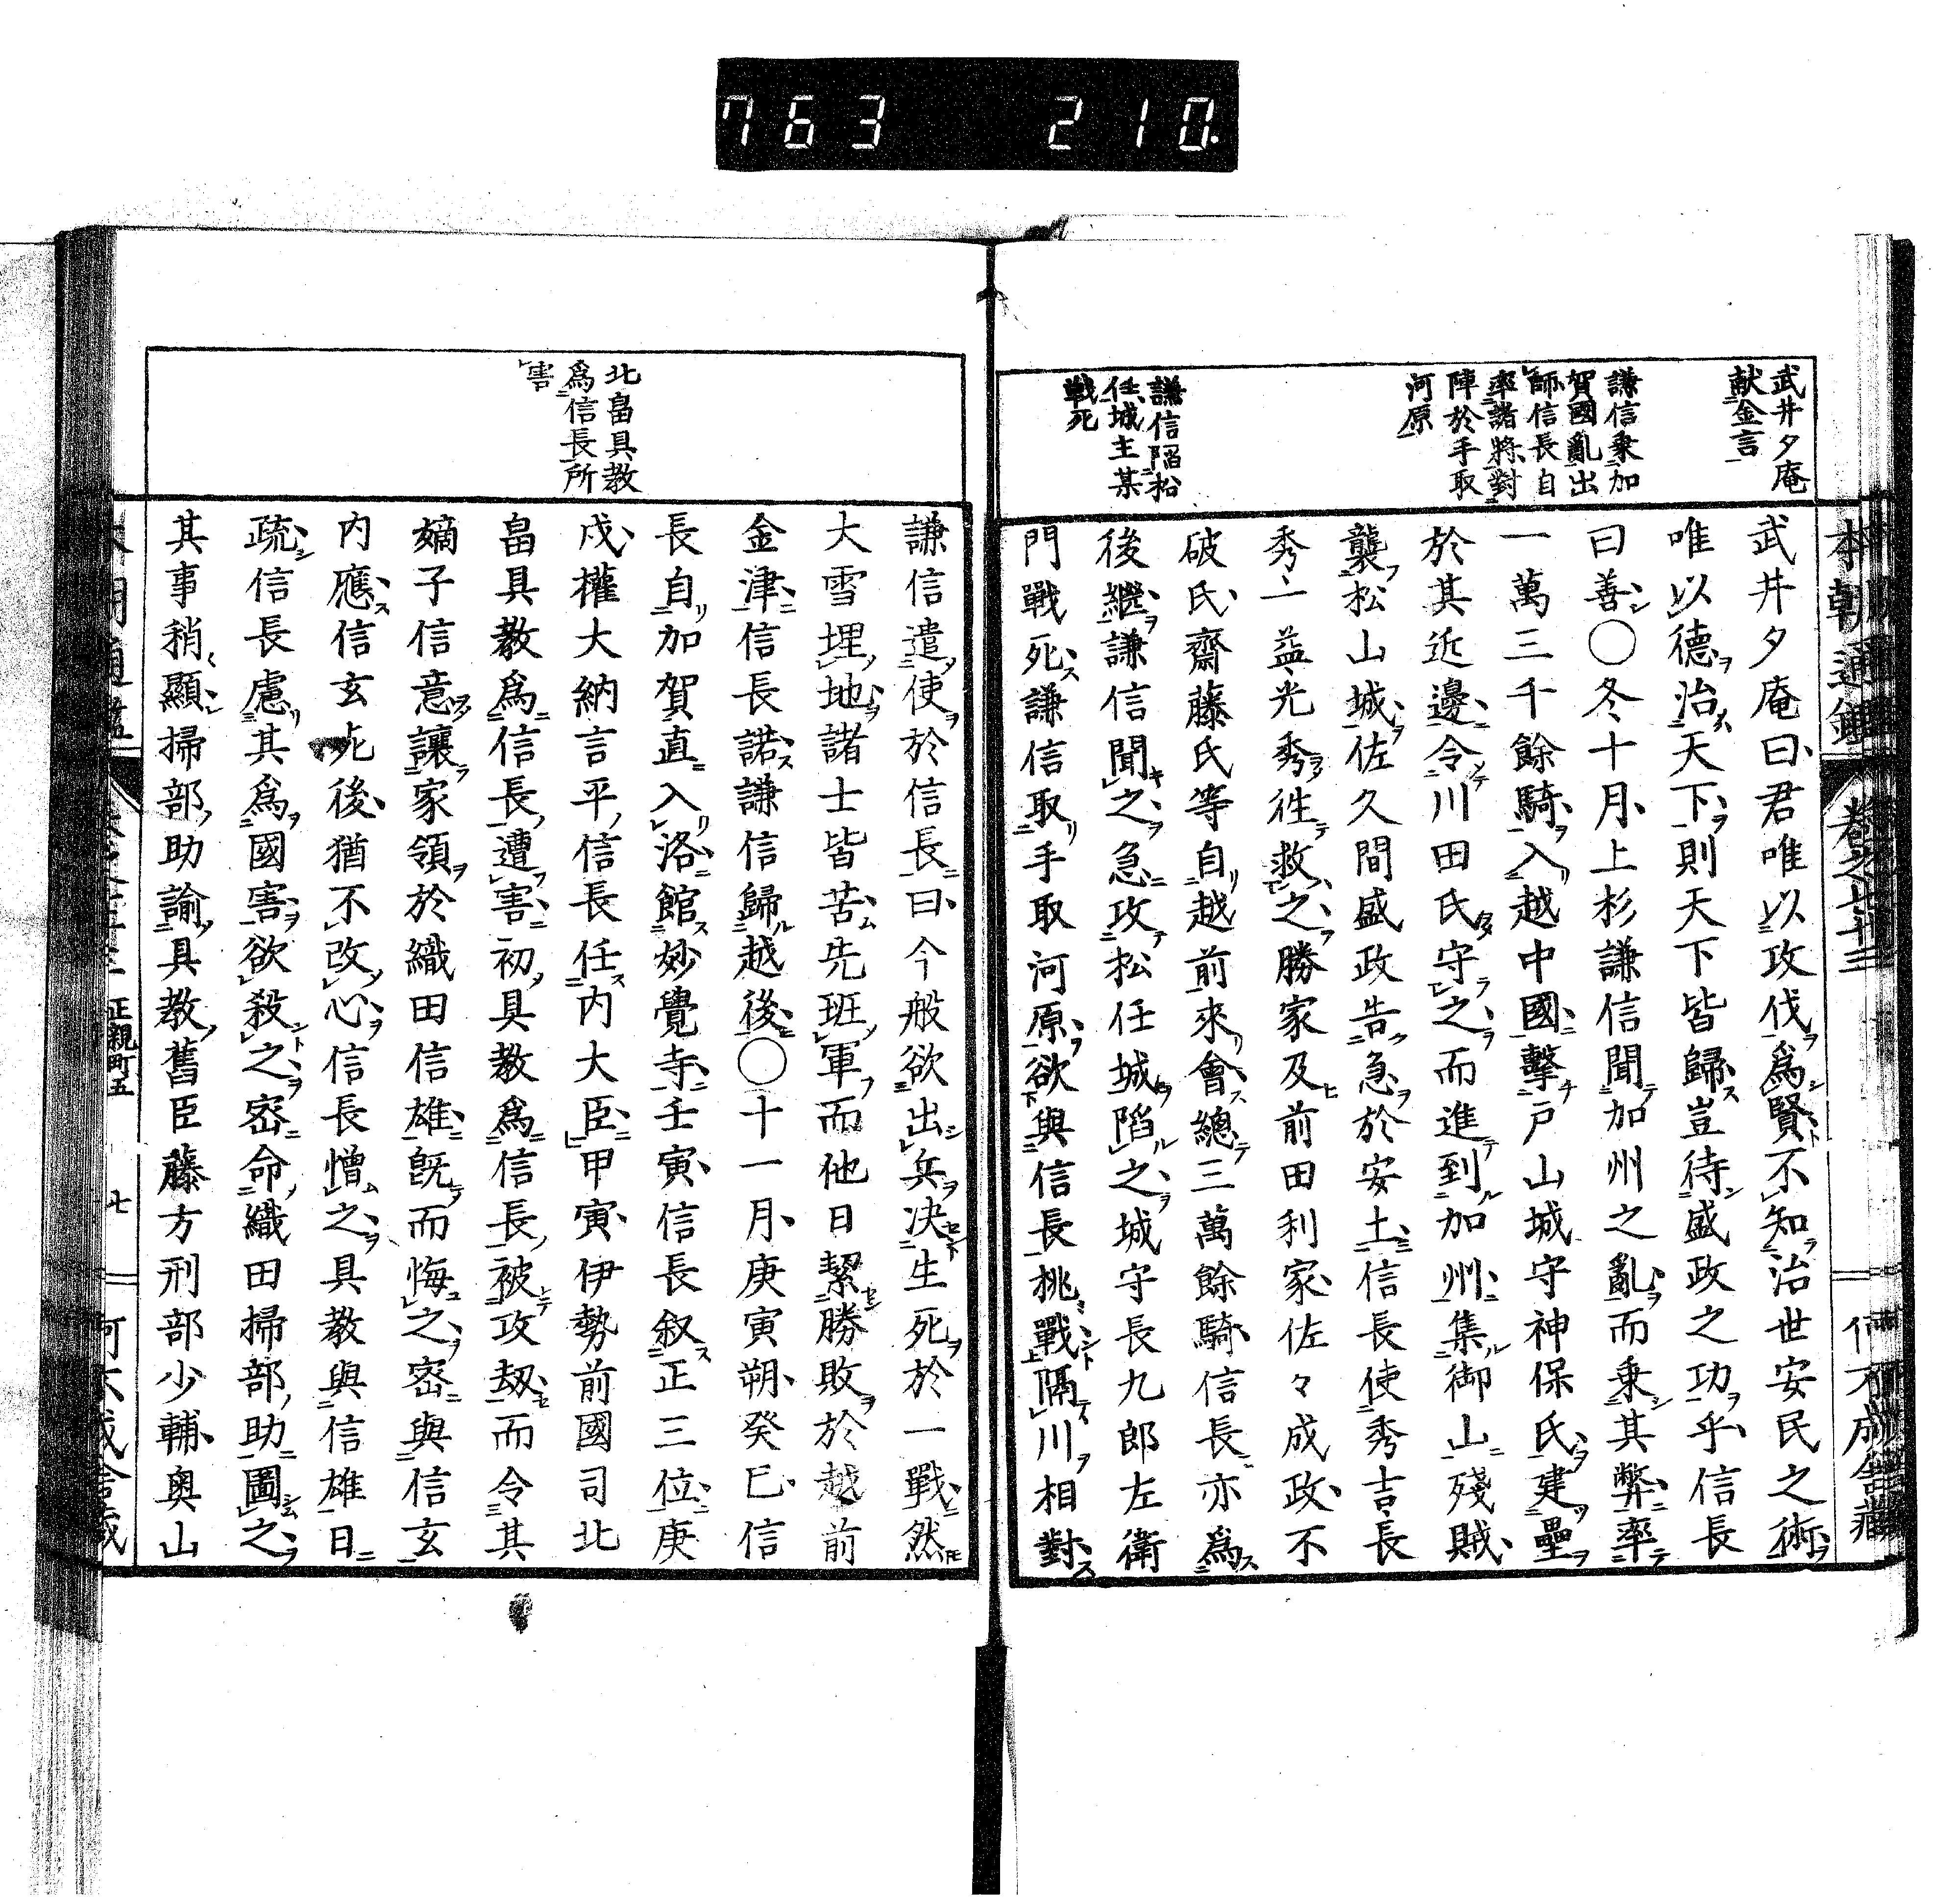 763 210.
武井夕庵
献金言
謙信乗加
賀國亂出
師信長自
率諸將對
陣於手取
河原
謙信陷松
任城主某
戰死
武井夕庵曰君唯以攻伐爲賢不知治世安民之術
唯以德治天下則天下皆歸豈待盛政之功乎信長
曰善○冬十月上杉謙信聞加州之亂而乗其弊率
一萬三千餘騎入越中國擊戸山城守神保氏建壘
於其近邊令川田氏守之而進到加州集御山殘賊
襲松山城佐久間盛政告急於安土信長使秀吉長
秀一益光秀徃救之勝家及前田利家佐々成政不
破氏齋藤氏等自越前來會總三萬餘騎信長亦爲
後繼謙信聞之急攻松任城陷之城守長九郎左衛
門戰死謙信取手取河原欲與信長桃戰隔川相對
北畠具教
爲信長所
害
謙信遣使於信長曰今般欲出兵决生死於一戰然
大雪埋地諸士皆苦先班軍而他日絜勝敗於越前
金津信長諾謙信歸越後○十一月庚寅朔癸巳信
長自加賀直入洛館妙覺寺壬寅信長叙正三位庚
戌權大納言平信長任内大臣甲寅伊勢前國司北
畠具教爲信長遭害初具教爲信長被攻刼而令其
嫡子信意讓家領於織田信雄既而悔之密與信玄
内應信玄死後猶不改心信長憎之具教與信雄日
疏信長慮其爲國害欲殺之密命織田掃部助圖之
其事稍顯掃部助諭具教舊臣藤方刑部少輔奥山
正親町五
七